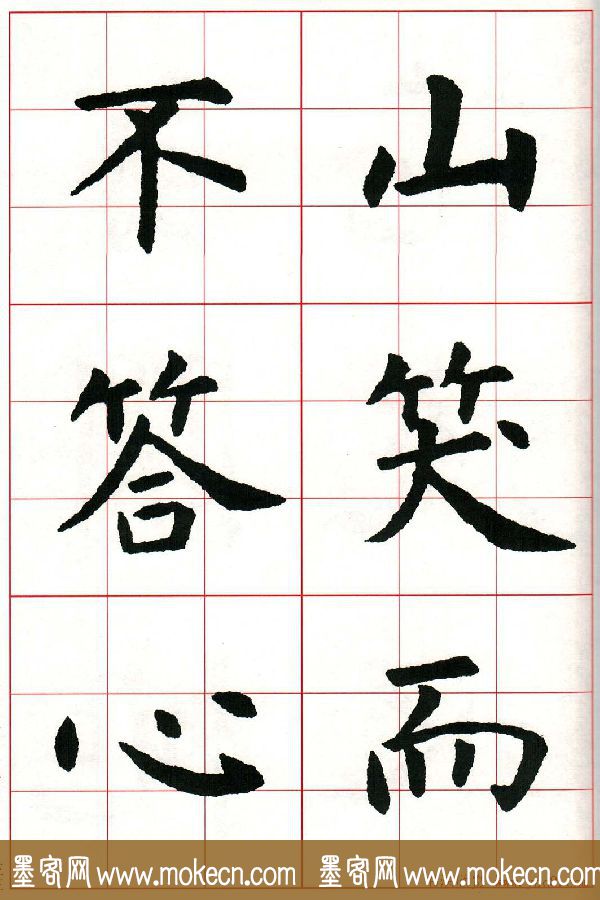 山笑而
不答心
墨客网 www.mokecn.com 墨客网 www.mokecn.com